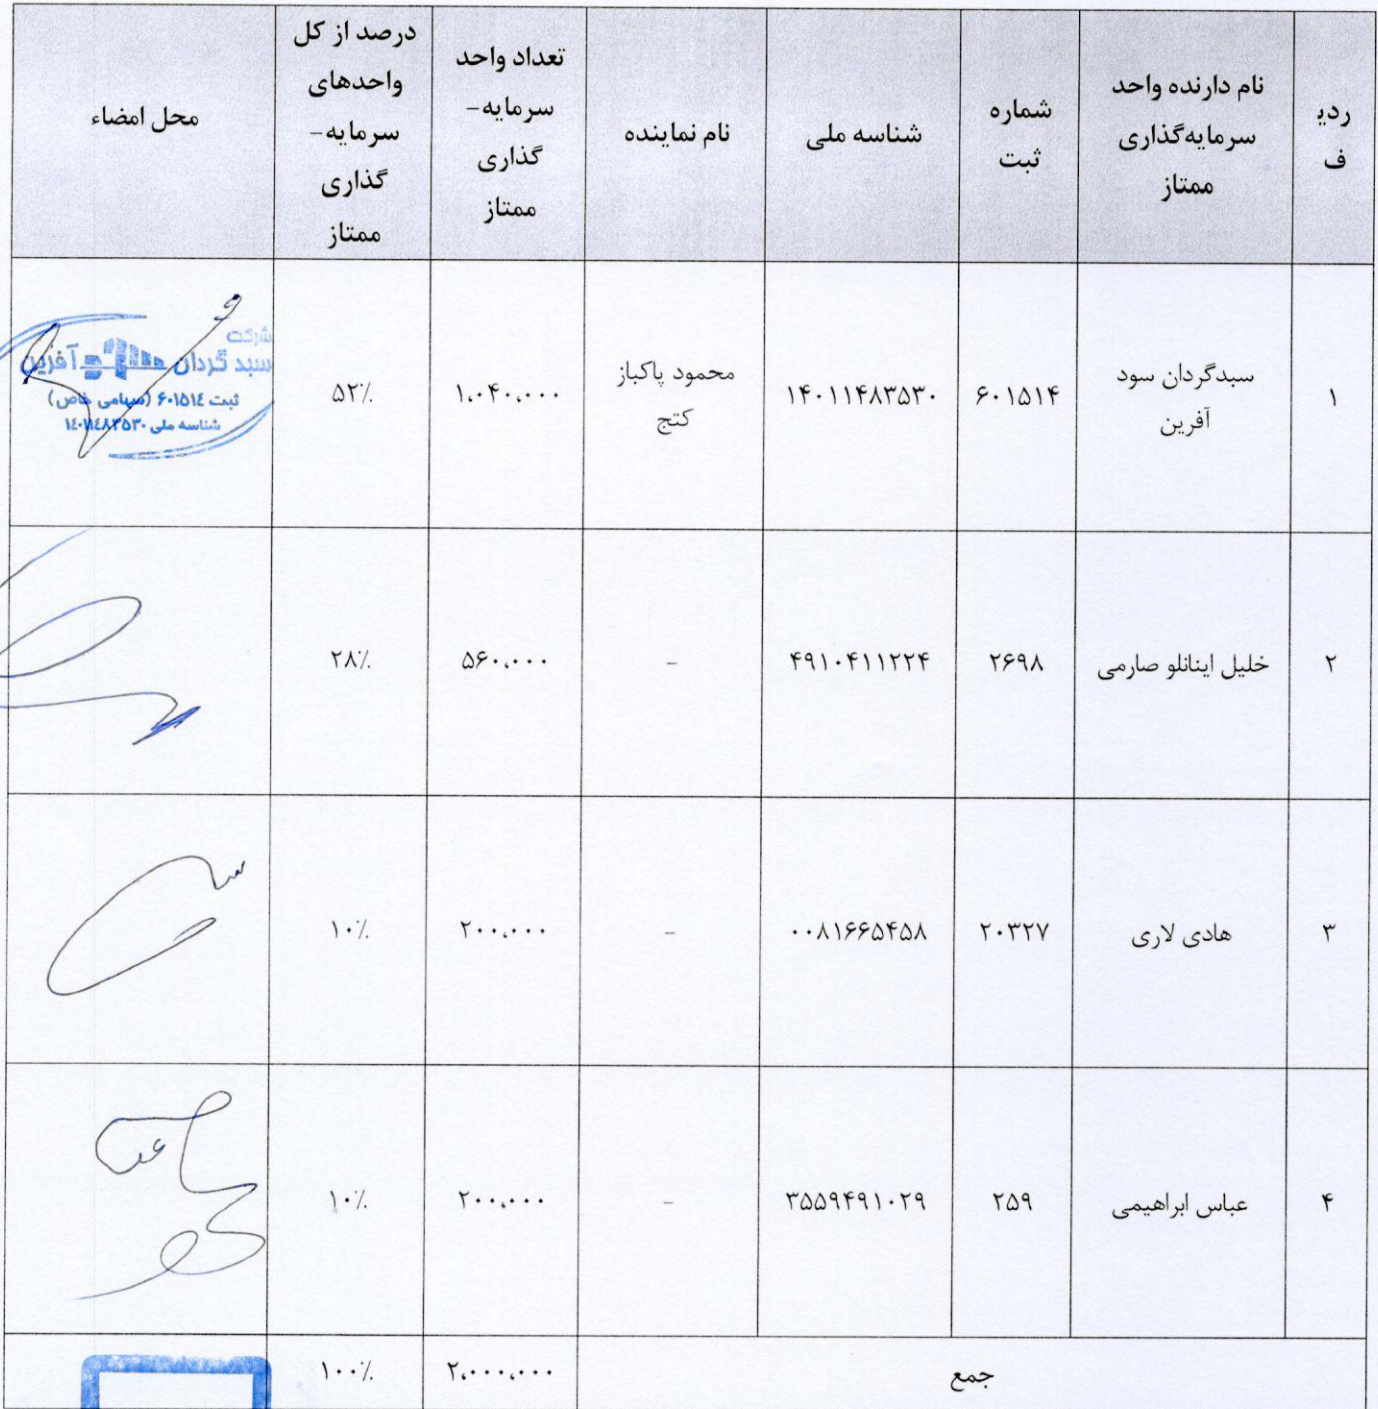 ردی
ف
نام دارنده واحد
سرمایه‌گذاری
ممتاز
شماره
ثبت
شناسه ملی
نام نماینده
تعداد واحد
سرمایه-
گذاری
ممتاز
درصد از کل
واحدهای
سرمایه-
گذاری
ممتاز
محل امضاء
۱
سبدگردان سود
آفرین
۶۰۱۵۱۴
۱۴۰۱۱۴۸۳۵۳۰
محمود پاکباز
کتج
۱،۰۴۰،۰۰۰
۵۲٪
شرکت
سبد گردان آفرین
ثبت ۶۰۱۵۱۴ (سهامی خاص)
شناسه ملی ۱۴۰۱۱۴۸۳۵۳۰
۲
خلیل اینانلو صارمی
۲۶۹۸
۴۹۱۰۴۱۱۲۲۴
-
۵۶۰،۰۰۰
۲۸٪
۳
هادی لاری
۲۰۳۲۷
۰۰۸۱۶۶۵۴۵۸
-
۲۰۰،۰۰۰
۱۰٪
۴
عباس ابراهیمی
۲۵۹
۳۵۵۹۴۹۱۰۲۹
-
۲۰۰،۰۰۰
۱۰٪
جمع
۲،۰۰۰،۰۰۰
۱۰۰٪